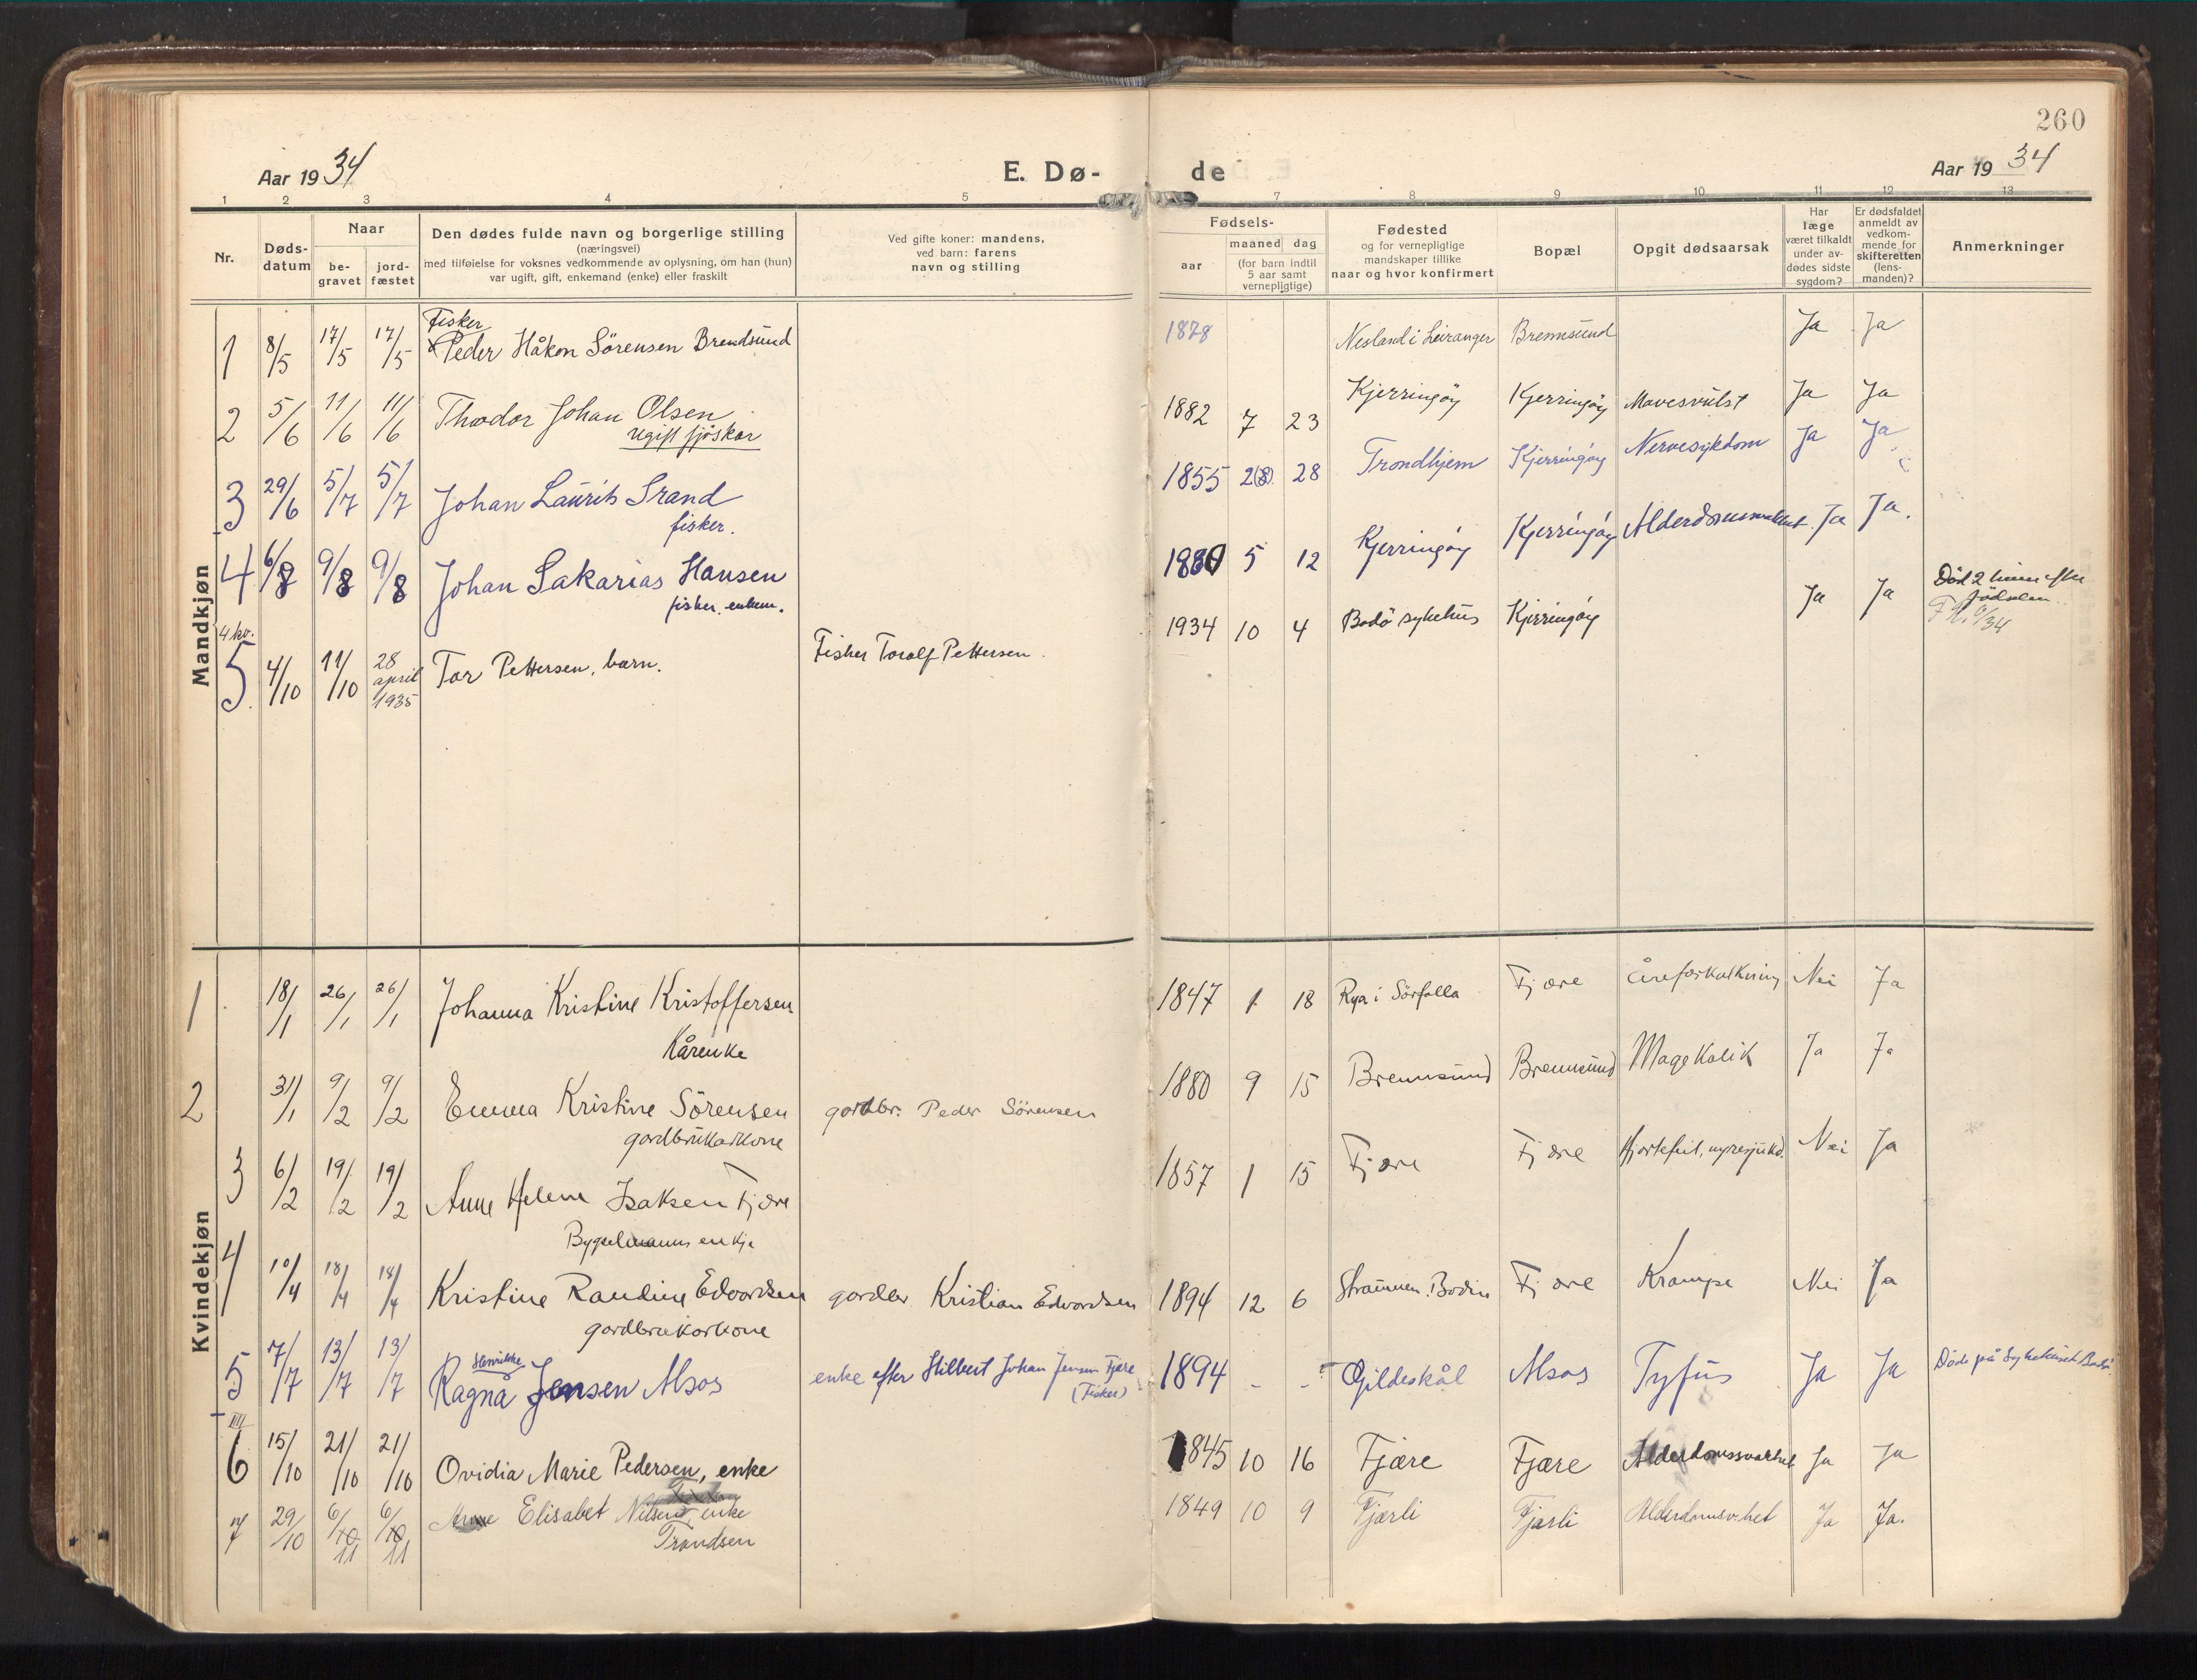 260
Aar 1934
E. Dø-
de
Aar 1934
1 2 3 4 5 7 8 9 10 11 12 13
Nr.
Døds-
datum
Naar
be-
gravet
jord-
fæstet
Den dødes fulde navn og borgerlige stilling
(næringsvei)
med tilføielse for voksnes vedkommende av oplysning, om han (hun)
var ugift, gift, enkemand (enke) eller fraskilt
Ved gifte koner: mandens,
ved barn: farens
navn og stilling
Fødsels-
aar
maaned dag
(for barn indtil
5 aar samt
vernepligtige)
Fødested
og for vernepligtige
mandskaper tillike
naar og hvor konfirmert
Bopæl
Opgit dødsaarsak
Har
læge
været tilkaldt
under av-
dødes sidste
sygdom?
Er dødsfaldet
anmeldt av
vedkom-
mende for
skifteretten
(lens-
manden)?
Anmerkninger
Mandkjøn
Fisker
1 8/5 17/5 17/5 Peder Håkon Sörensen Brendsund 1878 Nesland i Leiranger Brennsund Ja Ja
2 5/6 11/6 11/6 Thodor Johan Olsen 1882 7 23 Kjerringöy Kjerringöy Mavesvulst Ja Ja
ugift sjöskar
3 29/6 5/7 5/7 Johan Laurits Srand 1855 2(8) 28 Trondhjem Kjerringöy Nervesykdom Ja Ja
fisker.
4 6/8 9/8 9/8 Johan Sakarias Hansen 5 12 Kjerringöy Kjerringöy Ja Ja.
fisker. enkem.
4 kv.
5 4/10 11/10 28 april 1935 Tor Pettersen, barn. Fisker Toralf Pettersen. 1934 10 4 Bodö sykehus Kjerringöy Ja Ja Död 2 timer efter
födselen.
Kvindekjøn
1 18/1 26/1 26/1 Johanna Kristine Kristoffersen 1847 1 18 Rya i Sörfolla Fjære Åreforkalkning Nei Ja
Kårenke
2 31/1 9/2 9/2 Emma Kristine Sörensen gardbr. Peder Sörensen 1880 9 15 Brennsund Brennsund Magekolik Ja Ja
gardbrukarkone
3 6/2 19/2 19/2 Anne Helene Isaksen Fjære 1857 1 15 Fjære Fjære Hjortefeil, nyresjukd. Nei Ja
Bygselmanns enkje
4 10/4 18/4 18/4 Kristine Randine Edvardsen gardbr. Kristian Edvardsen 1894 12 6 Straumen. Bodin Fjære Krampe Nei Ja
gardbrukarkone
Henrikke
5 7/7 13/7 13/7 Ragna Jensen Alsos enke efter Hilbert Johan Jensen Fjære 1894 - - Gildeskål Alsos Tyfus Ja Ja Döde på Sykehuset Bodö
(Fisker)
6 15/10 21/10 21/10 Ovidia Marie Pedersen, enke 1845 10 16 Fjære Fjære Alderdomssvakhet Ja Ja
7 29/10 6/11 6/11 Anne Elisabet Nilsen, enke 1849 10 9 Fjærli Fjærli Alderdomsv.het Ja Ja.
Trondsen